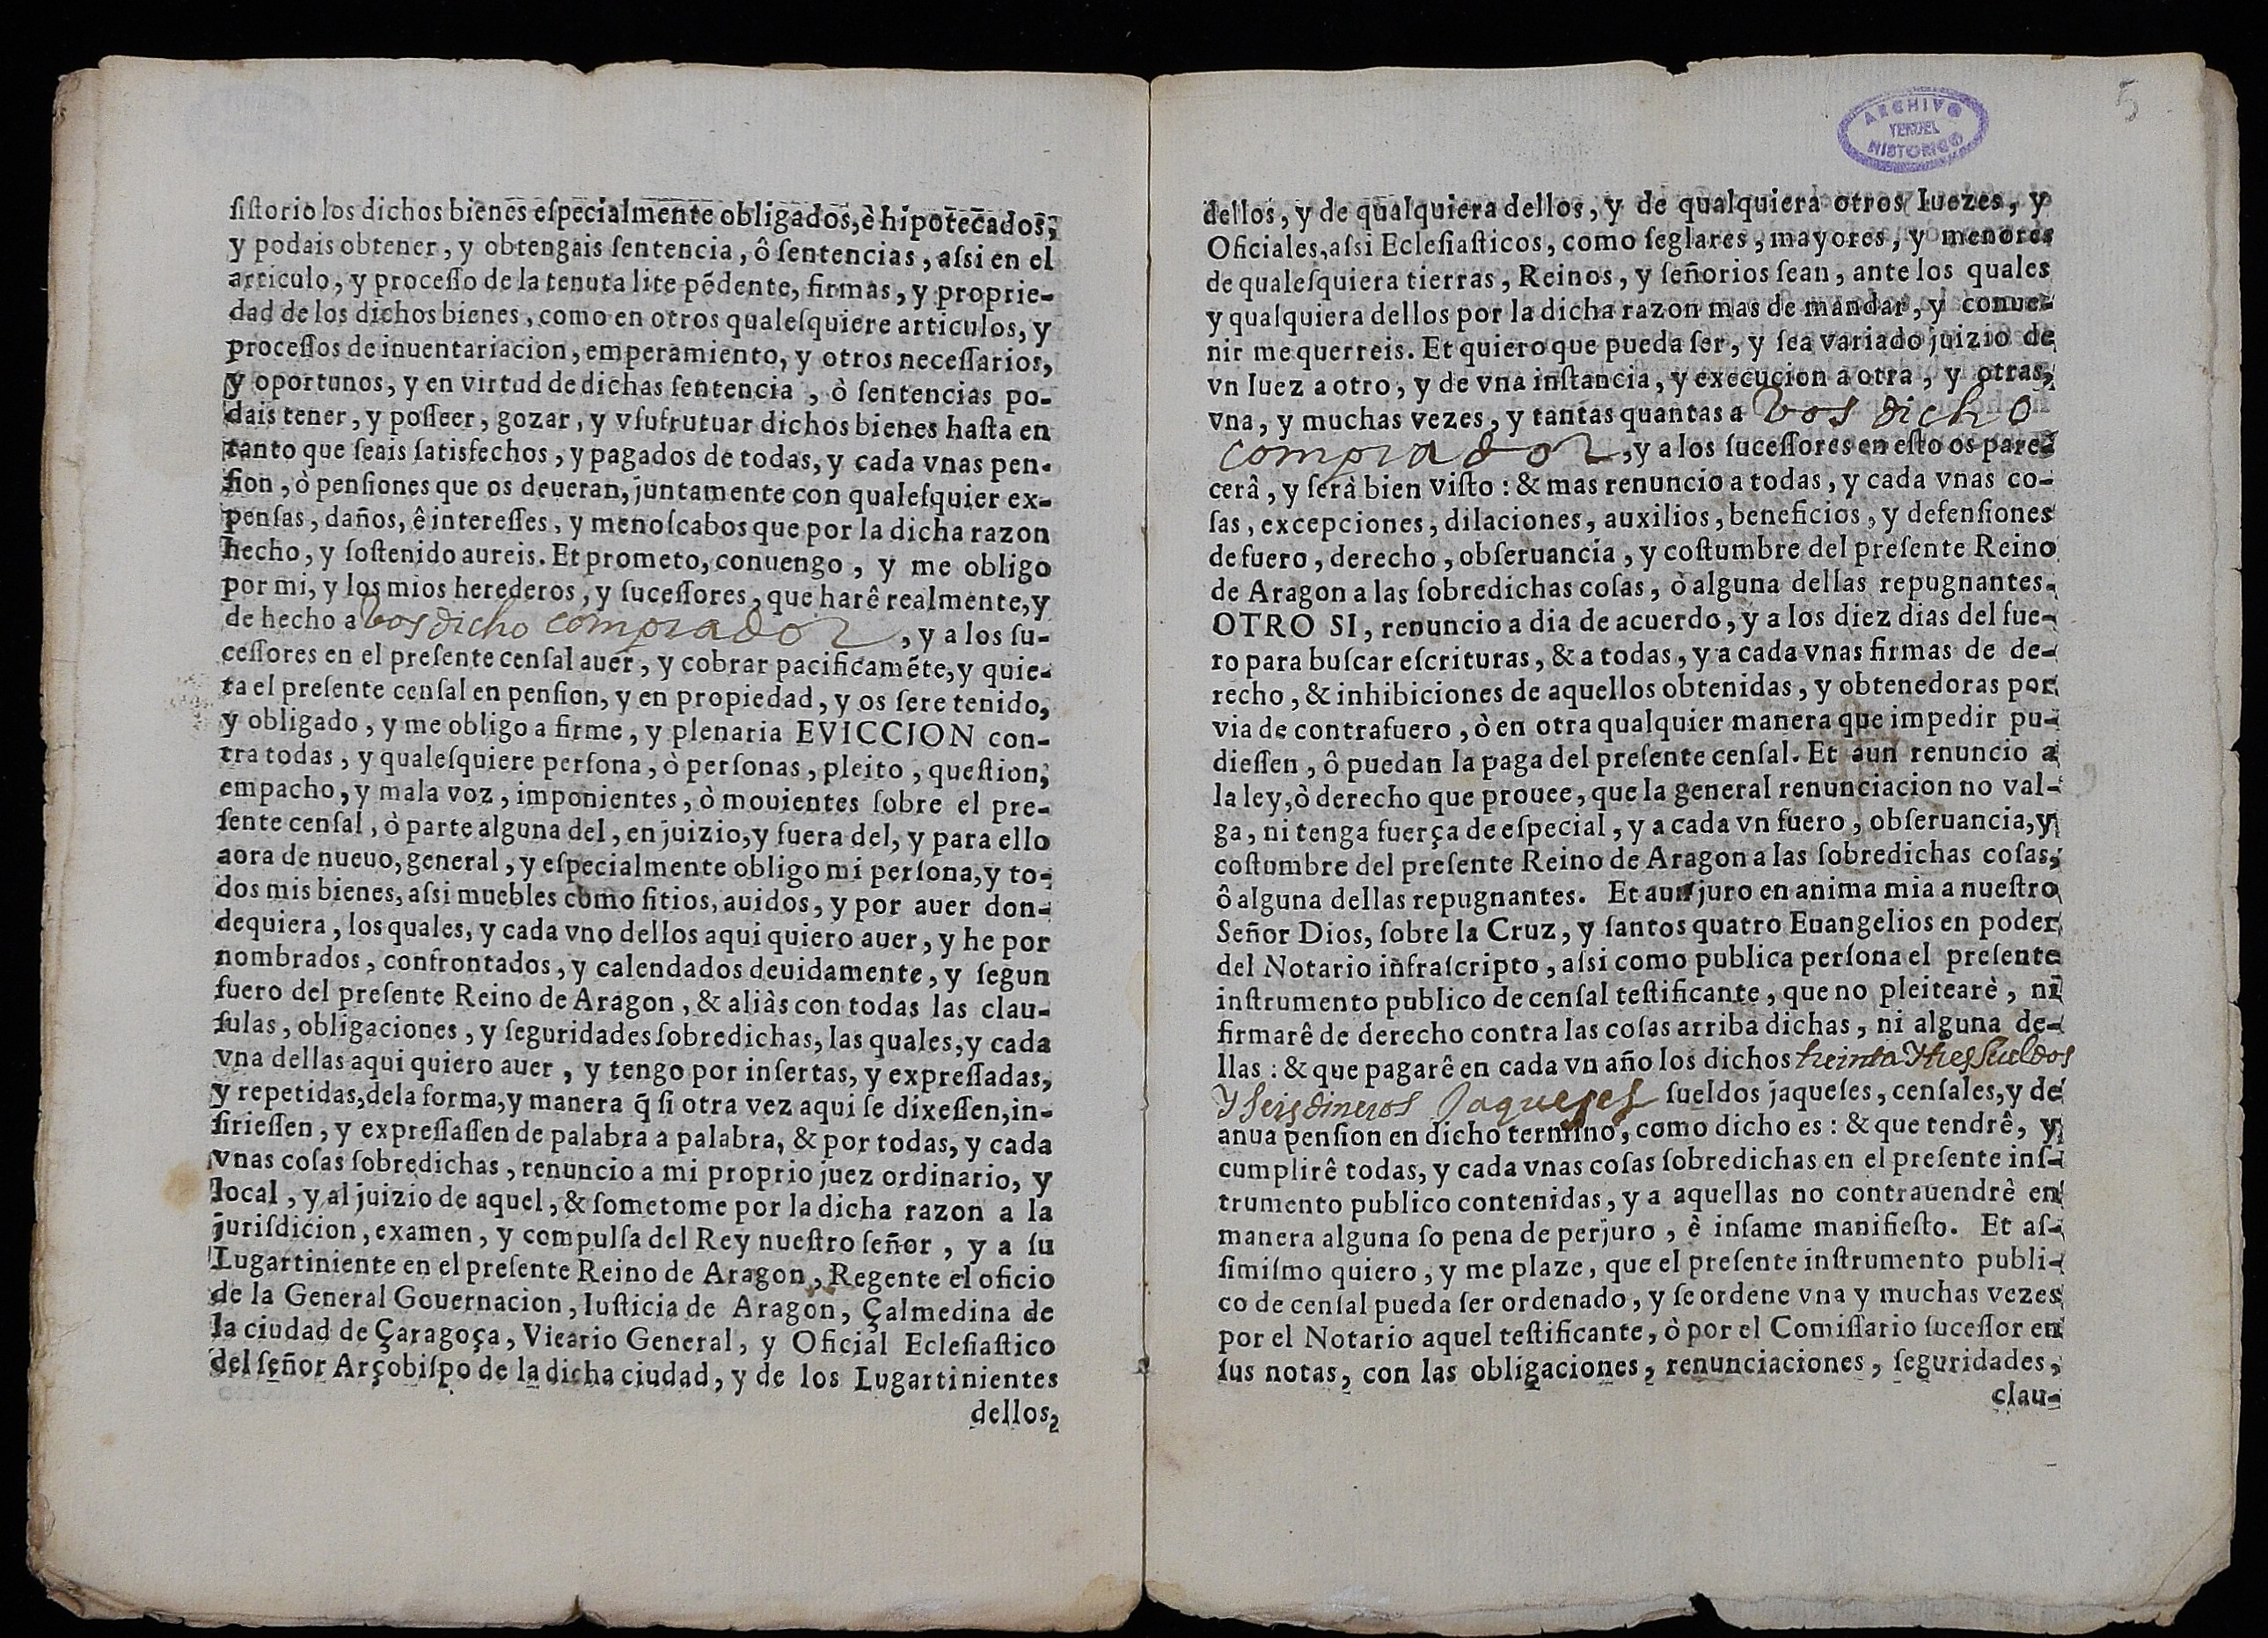 ſiſtorio los dichos bienes eſpecialmente obligados, è hipotecados,
y podais obtener, y obtengais ſentencia, ô ſentencias, aſsi en el
articulo, y proceſſo de la tenuta lite pẽdente, firmas, y proprie-
dad de los dichos bienes, como en otros qualeſquiere articulos, y
proceſſos de inuentariacion, emperamiento, y otros neceſſarios,
y oportunos, y en virtud de dichas ſentencia, ò ſentencias po-
dais tener, y poſſeer, gozar, y vſufrutuar dichos bienes haſta en
tanto que ſeais ſatisfechos, y pagados de todas, y cada vnas pen-
ſion, ò penſiones que os deueran, juntamente con qualeſquier ex-
penſas, daños, ê intereſſes, y menoſcabos que por la dicha razon
hecho, y ſoſtenido aureis. Et prometo, conuengo, y me obligo
por mi, y los mios herederos, y ſuceſſores, que harê realmente, y
de hecho a vos dicho comprador, y a los ſu-
ceſſores en el preſente cenſal auer, y cobrar pacificamẽte, y quie-
ta el preſente cenſal en penſion, y en propiedad, y os ſere tenido,
y obligado, y me obligo a firme, y plenaria EVICCION con-
tra todas, y qualeſquiere perſona, ò perſonas, pleito, queſtion,
empacho, y mala voz, imponientes, ò mouientes ſobre el pre-
ſente cenſal, ò parte alguna del, en juizio, y fuera del, y para ello
aora de nueuo, general, y eſpecialmente obligo mi perſona, y to-
dos mis bienes, aſsi muebles como ſitios, auidos, y por auer don-
dequiera, los quales, y cada vno dellos aqui quiero auer, y he por
nombrados, confrontados, y calendados deuidamente, y ſegun
fuero del preſente Reino de Aragon, & aliàs con todas las clau-
ſulas, obligaciones, y ſeguridades ſobredichas, las quales, y cada
vna dellas aqui quiero auer, y tengo por inſertas, y expreſſadas,
y repetidas, de la forma, y manera q̃ ſi otra vez aqui ſe dixeſſen, in-
ſirieſſen, y expreſſaſſen de palabra a palabra, & por todas, y cada
vnas coſas ſobredichas, renuncio a mi proprio juez ordinario, y
local, y al juizio de aquel, & ſometome por la dicha razon a la
juriſdicion, examen, y compulſa del Rey nueſtro ſeñor, y a ſu
Lugartiniente en el preſente Reino de Aragon, Regente el oficio
de la General Gouernacion, Iuſticia de Aragon, Çalmedina de
la ciudad de Çaragoça, Vicario General, y Oficial Ecleſiaſtico
del ſeñor Arçobiſpo de la dicha ciudad, y de los Lugartinientes
dellos,
ARCHIVO
TERUEL
HISTORICO
5
dellos, y de qualquiera dellos, y de qualquiera otros Iuezes, y
Oficiales, aſsi Ecleſiaſticos, como ſeglares, mayores, y menores
de qualeſquiera tierras, Reinos, y ſeñorios ſean, ante los quales
y qualquiera dellos por la dicha razon mas de mandar, y conue-
nir me querreis. Et quiero que pueda ſer, y ſea variado juizio de
vn Iuez a otro, y de vna inſtancia, y execucion a otra, y otras,
vna, y muchas vezes, y tantas quantas a vos dicho
comprador, y a los ſuceſſores en eſto os pare-
cerâ, y ſerà bien viſto: & mas renuncio a todas, y cada vnas co-
ſas, excepciones, dilaciones, auxilios, beneficios, y defenſiones
de fuero, derecho, obſeruancia, y coſtumbre del preſente Reino
de Aragon a las ſobredichas coſas, ò alguna dellas repugnantes.
OTRO SI, renuncio a dia de acuerdo, y a los diez dias del fue-
ro para buſcar eſcrituras, & a todas, y a cada vnas firmas de de-
recho, & inhibiciones de aquellos obtenidas, y obtenedoras por
via de contrafuero, ò en otra qualquier manera que impedir pu-
dieſſen, ô puedan la paga del preſente cenſal. Et aun renuncio a
la ley, ò derecho que prouee, que la general renunciacion no val-
ga, ni tenga fuerça de eſpecial, y a cada vn fuero, obſeruancia, y
coſtumbre del preſente Reino de Aragon a las ſobredichas coſas,
ô alguna dellas repugnantes. Et aun juro en anima mia a nueſtro
Señor Dios, ſobre la Cruz, y ſantos quatro Euangelios en poder
del Notario infraſcripto, aſsi como publica perſona el preſente
inſtrumento publico de cenſal teſtificante, que no pleitearè, ni
firmarê de derecho contra las coſas arriba dichas, ni alguna de-
llas: & que pagarê en cada vn año los dichos treinta y tres sueldos
y seis dineros Jaqueses ſueldos jaqueſes, cenſales, y de
anua penſion en dicho termino, como dicho es: & que tendrê, y
cumplirê todas, y cada vnas coſas ſobredichas en el preſente inſ-
trumento publico contenidas, y a aquellas no contrauendrê en
manera alguna ſo pena de perjuro, è infame manifieſto. Et aſ-
ſimiſmo quiero, y me plaze, que el preſente inſtrumento publi-
co de cenſal pueda ſer ordenado, y ſe ordene vna y muchas vezes
por el Notario aquel teſtificante, ò por el Comiſſario ſuceſſor en
ſus notas, con las obligaciones, renunciaciones, ſeguridades,
clau-